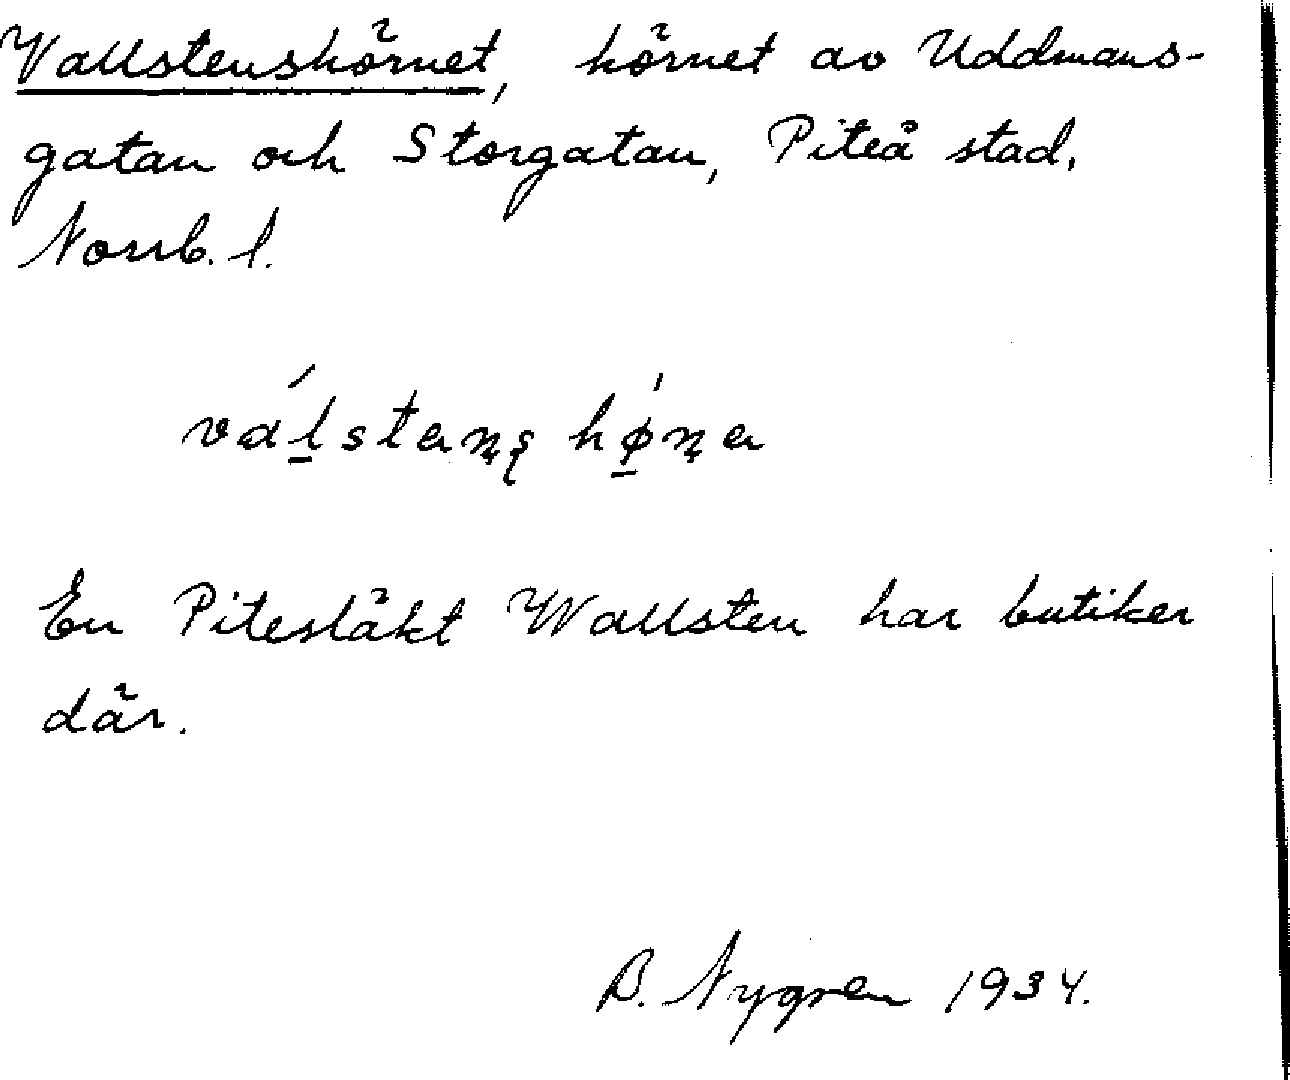 Vallstenshörnet, hörnet av Uddmans-
gatan och Storgatan, Piteå stad,
Norrb. l.
En Pitesläkt Wallsten har butiker
där.
B. Nygren 1934.